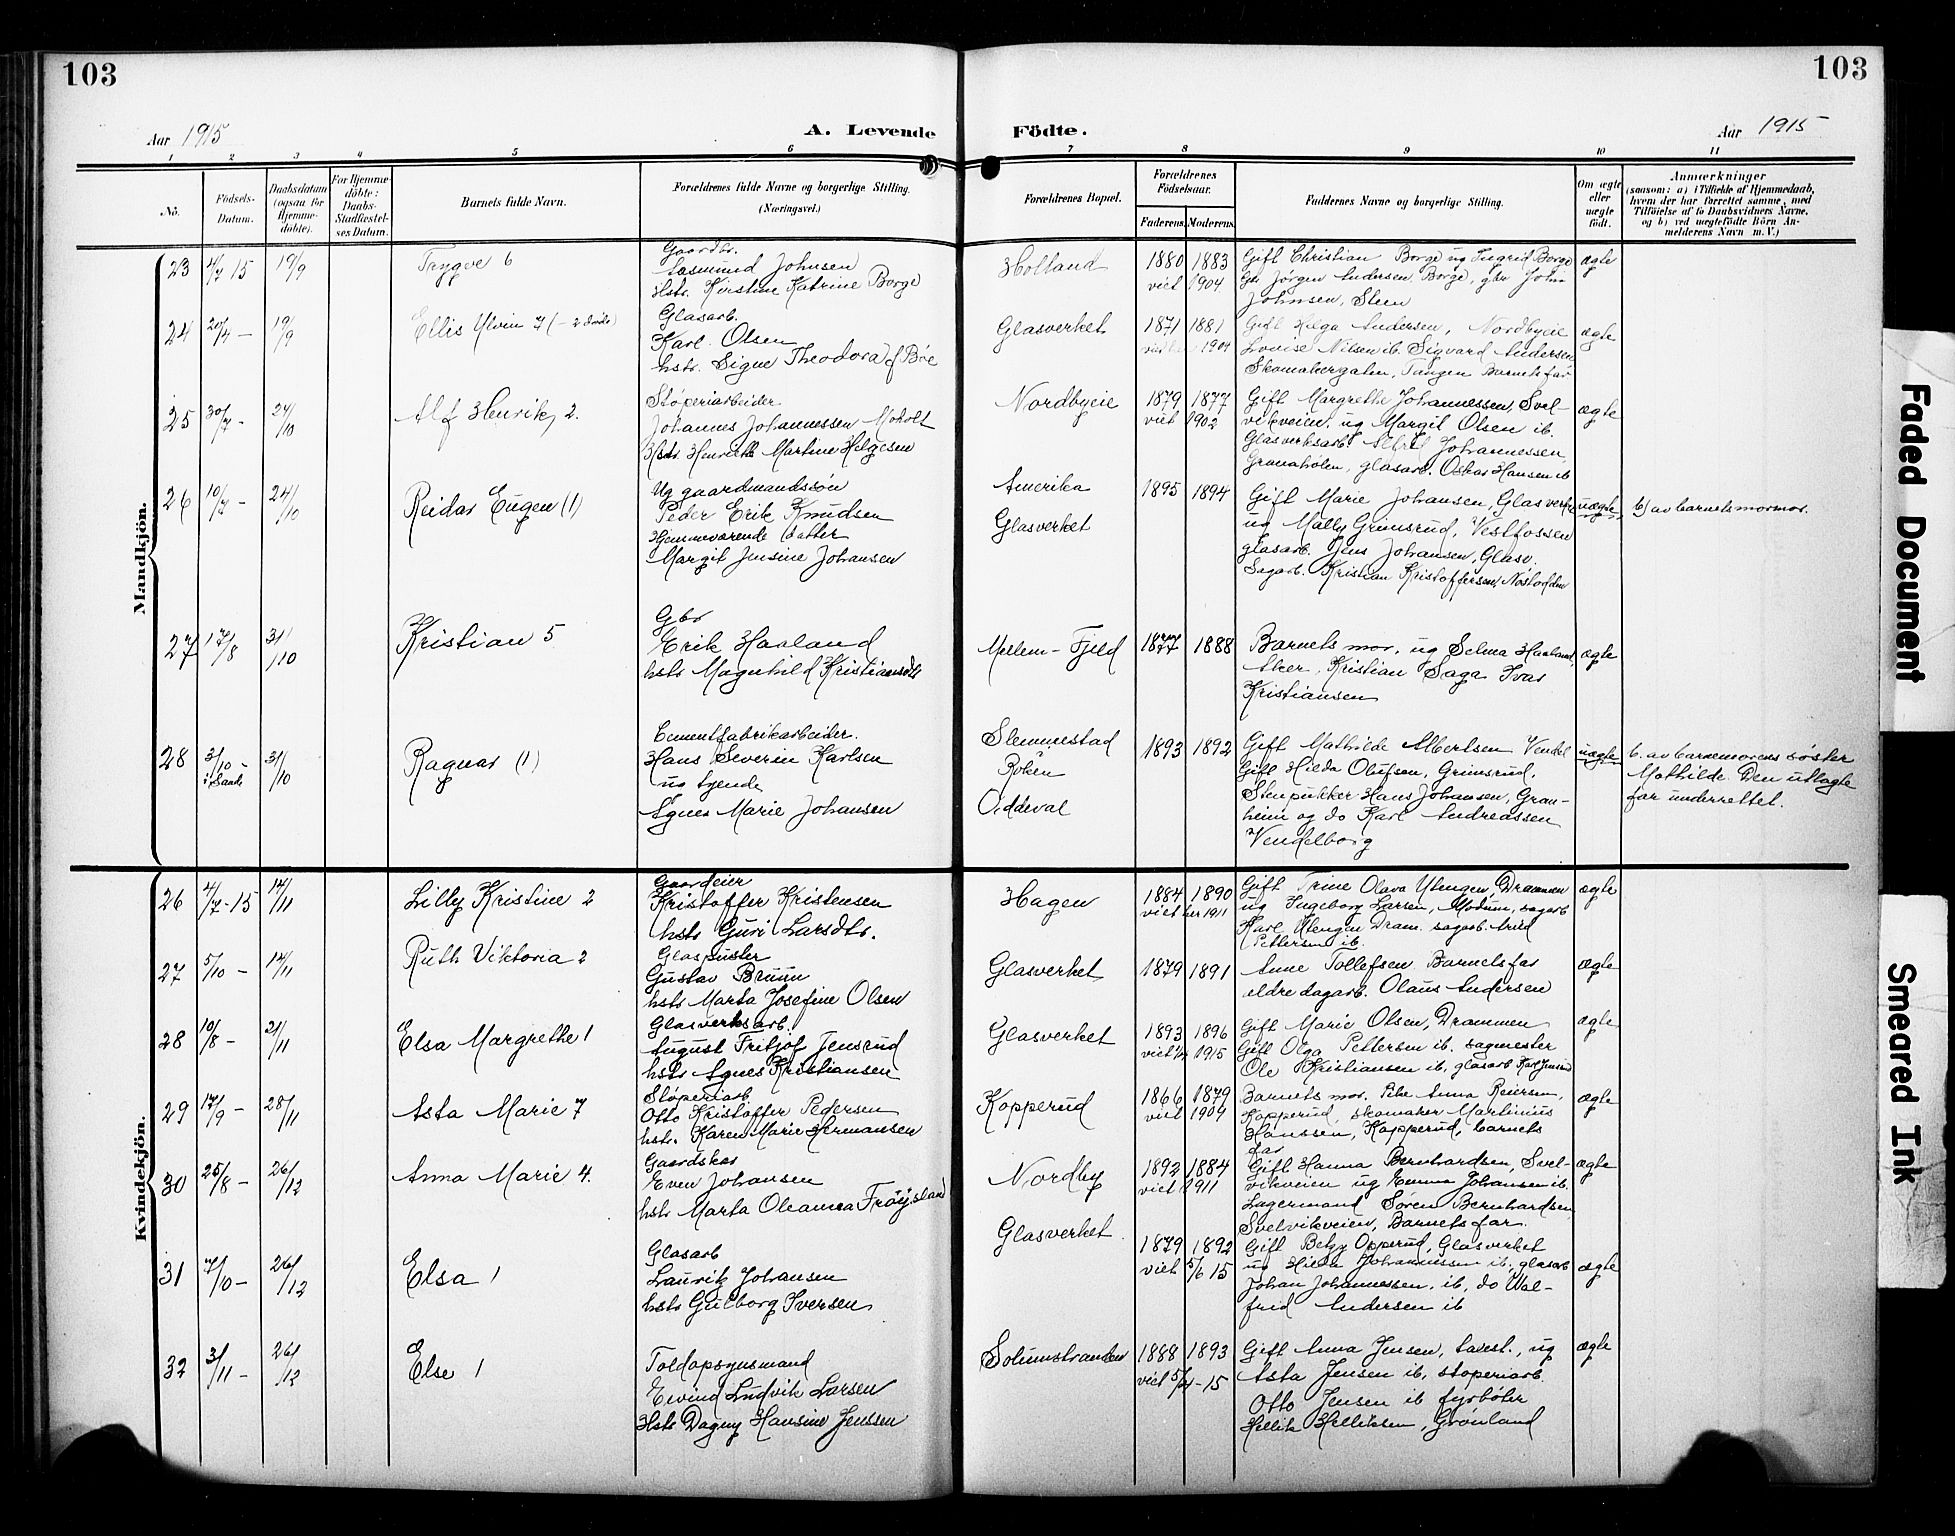 103
103
Aar 1915
A. Levende
Födte.
Aar 1915
1 2 3 4 5 6 7 8 9 10 11
No.
Födsels-
Datum.
Daabsdatum
(ogsaa for
Hjemme-
döbte).
For Hjemme-
döbte:
Daabs-
Stadfæstel-
ses Datum.
Barnets fulde Navn.
Forældrenes fulde Navne og borgerlige Stilling.
(Næringsvei.)
Forældrenes Bopæl.
Forældrenes
Födselsaar.
Faderens.
Moderens.
Faddernes Navne og borgerlige Stilling.
Om ægte
eller
uægte
födt.
Anmærkninger
(saasom: a) i Tilfælde af Hjemmedaab,
hvem der har forrettet samme, med
Tilföielse af to Daabsvidners Navne,
og b) ved uægtefödte Börn An-
melderens Navn m. V.)
Mandkjön.
23 4/7 15 19/9 Trygve 6
Gaardbr.
Aasmund Johnsen
Hstr. Kirstine Katrine Borge
Holtand
1880 1883
viet 1904
Gift Christian Borge ug Ingrid Borge
Gbr Jørgen Andersen Borge, gbr John
Johnsen, Steen
ægte
24 20/4 — 19/9 Ellis Ulvin 7 (- 2 døde)
Glasarb.
Karl Olsen
hstr. Signe Theodora f Bøe
Glasverket
1871 1881
1904
Gift Helga Andersen, Nordbyeie
Lovise Nilsen ib. Sigvard Andersen
Skomakergaten, Tangen Barnets far
ægte
25 30/7 - 24/10 Alf Henrik, 2.
Støperiarbeider
Johannes Johannessen Moholt
Hstr. Henriette Martine Helgesen
Nordbyeie
1879 1877
viet 1902
Gift Margrethe Johannessen, Svel-
vikveien, ug Margit Olsen ib.
Glasverksarb. Johannessen,
Granaholen, glasarb. Oskar Hansen ib
ægte
26 10/7 - 24/10 Reidar Eugen (1)
Ug gaardmandssøn
Peder Erik Knudsen
Hjemmeværende datter
Margit Jensine Johansen
Amerika
Glasverket
1895 1894
Gift Marie Johansen, Glasverket
ug Mally Grimsrud, Vestfossen
glasarb. Jens Johansen, Glasv.
Sagarb. Kristian Kristoffersen, Notodden
uægte
b) av barnets mormor.
27 17/8 31/10 Kristian 5
Gbr
Erik Haaland
hstr Magnhild Kristiansdtr
Mellem-Fjeld
1877 1888
Barnets mor, ug Selma Haaland,
Aker, Kristian Saga Ivar
Kristiansen
ægte
28 3/10 - i Sande 31/10 Ragnar (1)
Cementfabrikarbeider.
Hans Severin Karlsen
ug tyende
Agnes Marie Johansen
Slemmestad
Røken
Oddeval
1893 1892
Gift Mathilde Albertsen Vendel
Gift Hilda Olufsen, Grimsrud,
Stenpukker Hans Johansen, Gran-
heim og do Karl Andreassen
Vendelborg
uægte
b. av barnemorens søster
Mathilde. Den utlagte
far underrettet.
Kvindekjön.
26 4/7-15 14/11 Lilly Kristine 2
Gaardeier
Kristoffer Kristensen
hstr Guri Larsdtr.
Hagen
1884 1890
viet her 1911
Gift Trine Olava Utengen, Drammen
ug Ingeborg Larsen, Modum, sagarb
Karl Utengen Dram. sagarb. Arvid
Pettersen ib.
ægte
27 5/10 — 14/11 Ruth Viktoria 2
Glaspuster
Gustav Bruun
hstr Marta Josefine Olsen
Glasverket
1879 1891
Anne Tollefsen Barnets far
eldre dagarb. Olaus Andersen
ægte
28 10/8 - 21/11 Elsa Margrethe 1
Glasverksarb.
August Fritjof Jensrud
hstr Agnes Kristiansen
Glasverket
1893 1896
viet 1915
Gift Marie Olsen, Drammen
Gift Olga Pettersen ib. sagmester
Ole Kristiansen ib, glasarb Karl Jensrud
ægte
29 17/9 - 28/11 Asta Marie 7
Støperiarb.
Otto Kristoffer Pedersen
hstr. Karen Marie Hermansen
Kopperud
1866 1879
viet 1904
Barnets mor. Pike Anna Reiersen,
Kopperud, skomaker Martinius
Hanssen, Kopperud, barnets
far
ægte
30 25/8 - 26/12 Anna Marie 4.
Gaardskar
Even Johansen
hstr Marta Oleanna Frøysland
Nordby
1892 1884
viet 1911
Gift Hanna Bernhardsen, Svel-
vikveien ug Emma Johansen ib.
Lagermand Søren Bernhardsen,
Svelvikveien, Barnets far.
ægte
31 7/10 - 26/12 Elsa 1
Glasarb
Lauritz Johansen
hstr Gulborg Iversen
Glasverket
1879 1892
viet 5/6 15
Gift Betzy Opperud, Glasverket
ug Hilda Johannessen ib, glasarb
Johan Johannessen, ib, do Wal-
frid Andersen ib
ægte
32 3/11 - 26/12 Else 1
Toldopsynsmand
Eivind Ludvik Larsen
Hstr Dagny Hansine Jenssen
Solumstranden
1888 1893
viet 5/4-15
Gift Anna Jensen, ug
Asta Jensen ib, støperiarb.
Otto Jensen ib fyrbøter
Hellik Helliksen, Grønland
ægte
Faded Document
Smeared Ink